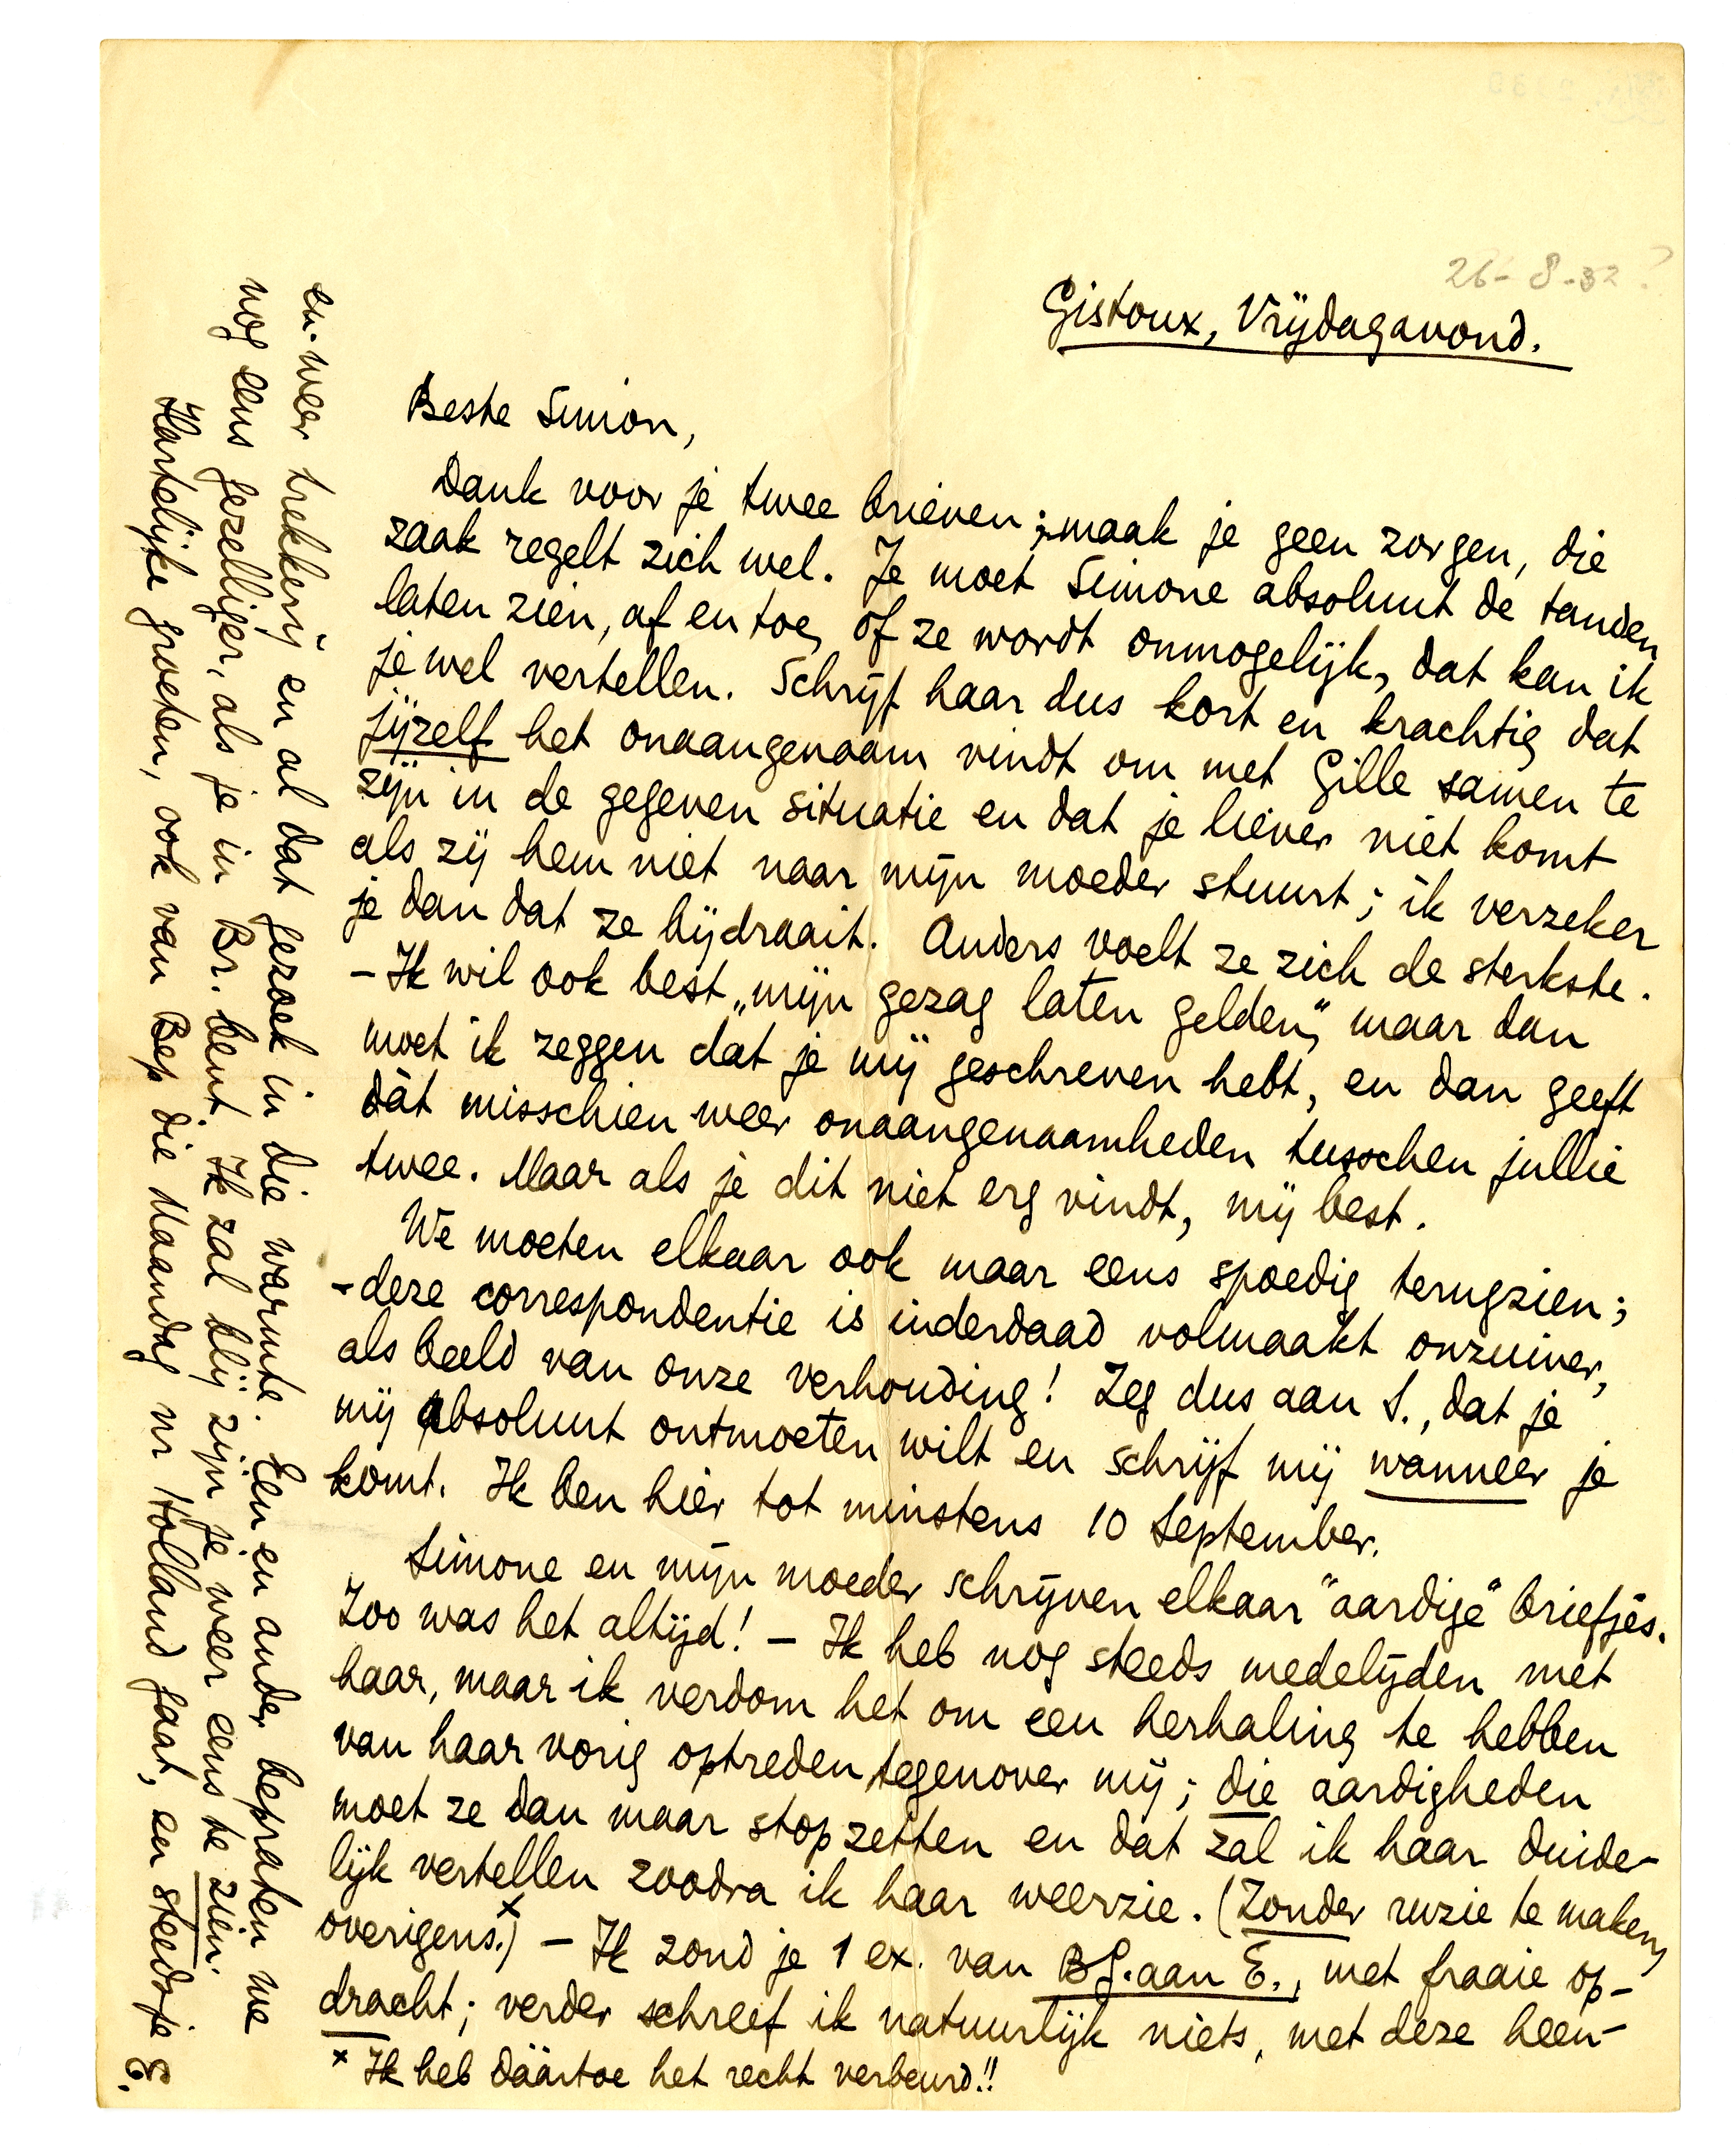 26-8-32?
Gistoux, Vrijdagavond.
Beste Simon,
Dank voor je twee brieven; maak je geen zorgen, die
zaak regelt zich wel. Je moet Simone absoluut de tanden
laten zien, af en toe, of ze wordt onmogelijk, dat kan ik
je wel vertellen. Schrijf haar dus kort en krachtig dat
jijzelf het onaangenaam vindt om met Gille samen te
zijn in de gegeven situatie en dat je liever niet komt
als zij hem niet naar mijn moeder stuurt; ik verzeker
je dan dat ze bijdraait. Anders voelt ze zich de sterkste.
– Ik wil ook best „mijn gezag laten gelden", maar dan
moet ik zeggen dat je mij geschreven hebt, en dan geeft
dàt misschien weer onaangenaamheden tusschen jullie
twee. Maar als je dit niet erg vindt, mij best.
We moeten elkaar ook maar eens spoedig terugzien;
– deze correspondentie is inderdaad volmaakt onzuiver,
als beeld van onze verhouding! Zeg dus aan S., dat je
mij absoluut ontmoeten wilt en schrijf mij wanneer je
komt. Ik ben hier tot minstens 10 September.
Simone en mijn moeder schrijven elkaar "aardige" briefjes.
Zoo was het altijd! – Ik heb nog steeds medelijden met
haar, maar ik verdom het om een herhaling te hebben
van haar vorig optreden tegenover mij; die aardigheden
moet ze dan maar stopzetten en dat zal ik haar duide-
lijk vertellen zoodra ik haar weerzie. (Zonder ruzie te maken,
overigens.)x – Ik zond je 1 ex. van B.G. aan E., met fraaie op-
dracht; verder schreef ik natuurlijk niets, met deze heen-
x Ik heb dáártoe het recht verbeurd!!
en-weer trekkerij en al dat gezoek in die warmte. Een en ander bepraten we
nog eens gezelliger, als je in Br. bent. Ik zal blij zijn je weer eens te zien.
Hartelijke groeten, ook van Bep die Maandag nr Holland gaat, en steeds je E.